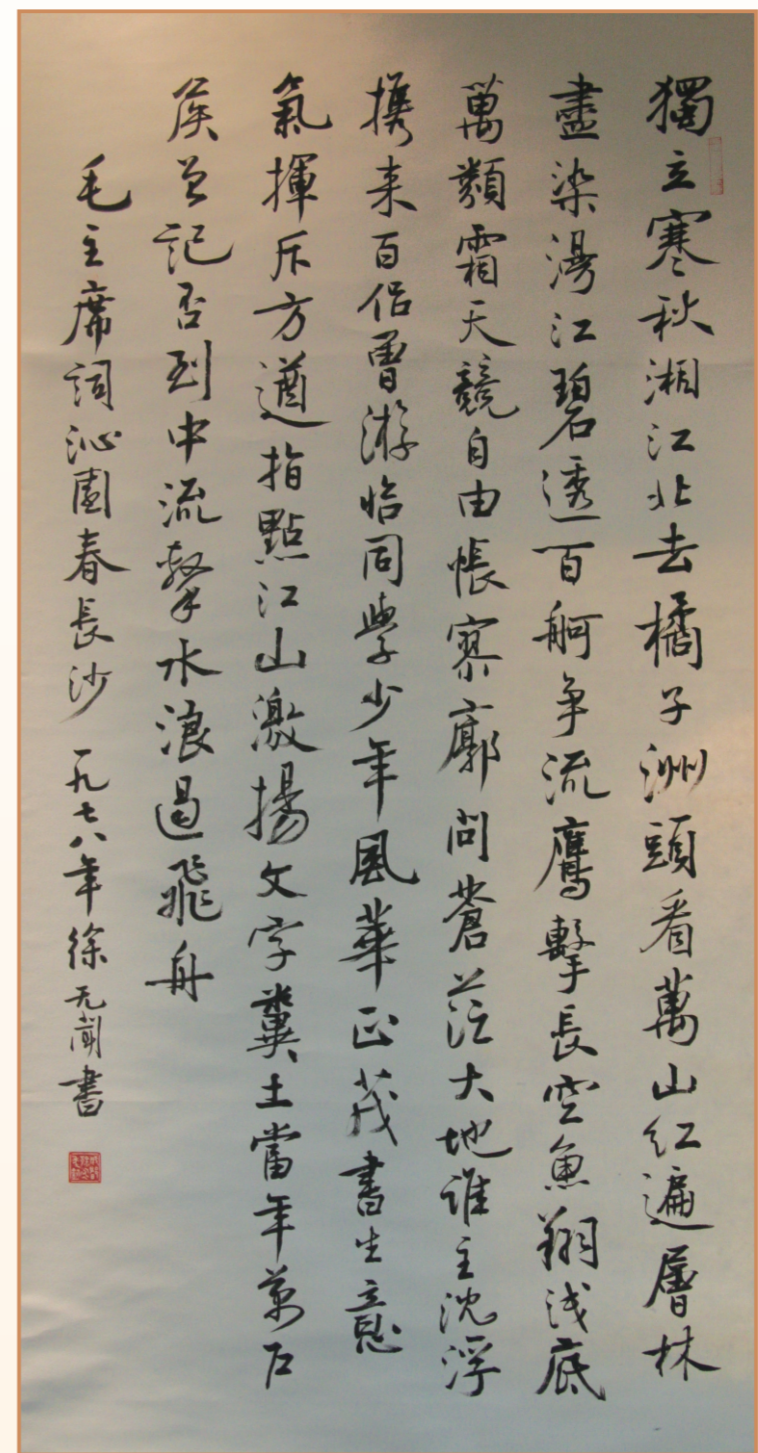 獨立寒秋湘江北去橘子洲頭看萬山紅遍層林
盡染漫江碧透百舸争流鷹擊長空魚翔浅底
萬類霜天競自由悵寥廓問蒼茫大地誰主沈浮
携来百侣曾游恰同學少年風華正茂書生意
氣揮斥方遒指點江山激揚文字糞土當年萬户
侯曾記否到中流擊水浪遏飛舟
毛主席詞沁園春長沙 一九七八年徐无聞書